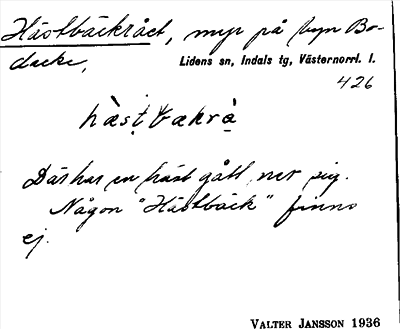 Hästbäckrået, myr på byn Bo-
dacke,
Lidens sn, Indals tg, Västernorrl. l.
426
hàsṭbækrà̱
Där har en häst gått ner sig.
Någon "Hästbäck" finns
ej.
VALTER JANSSON 1936